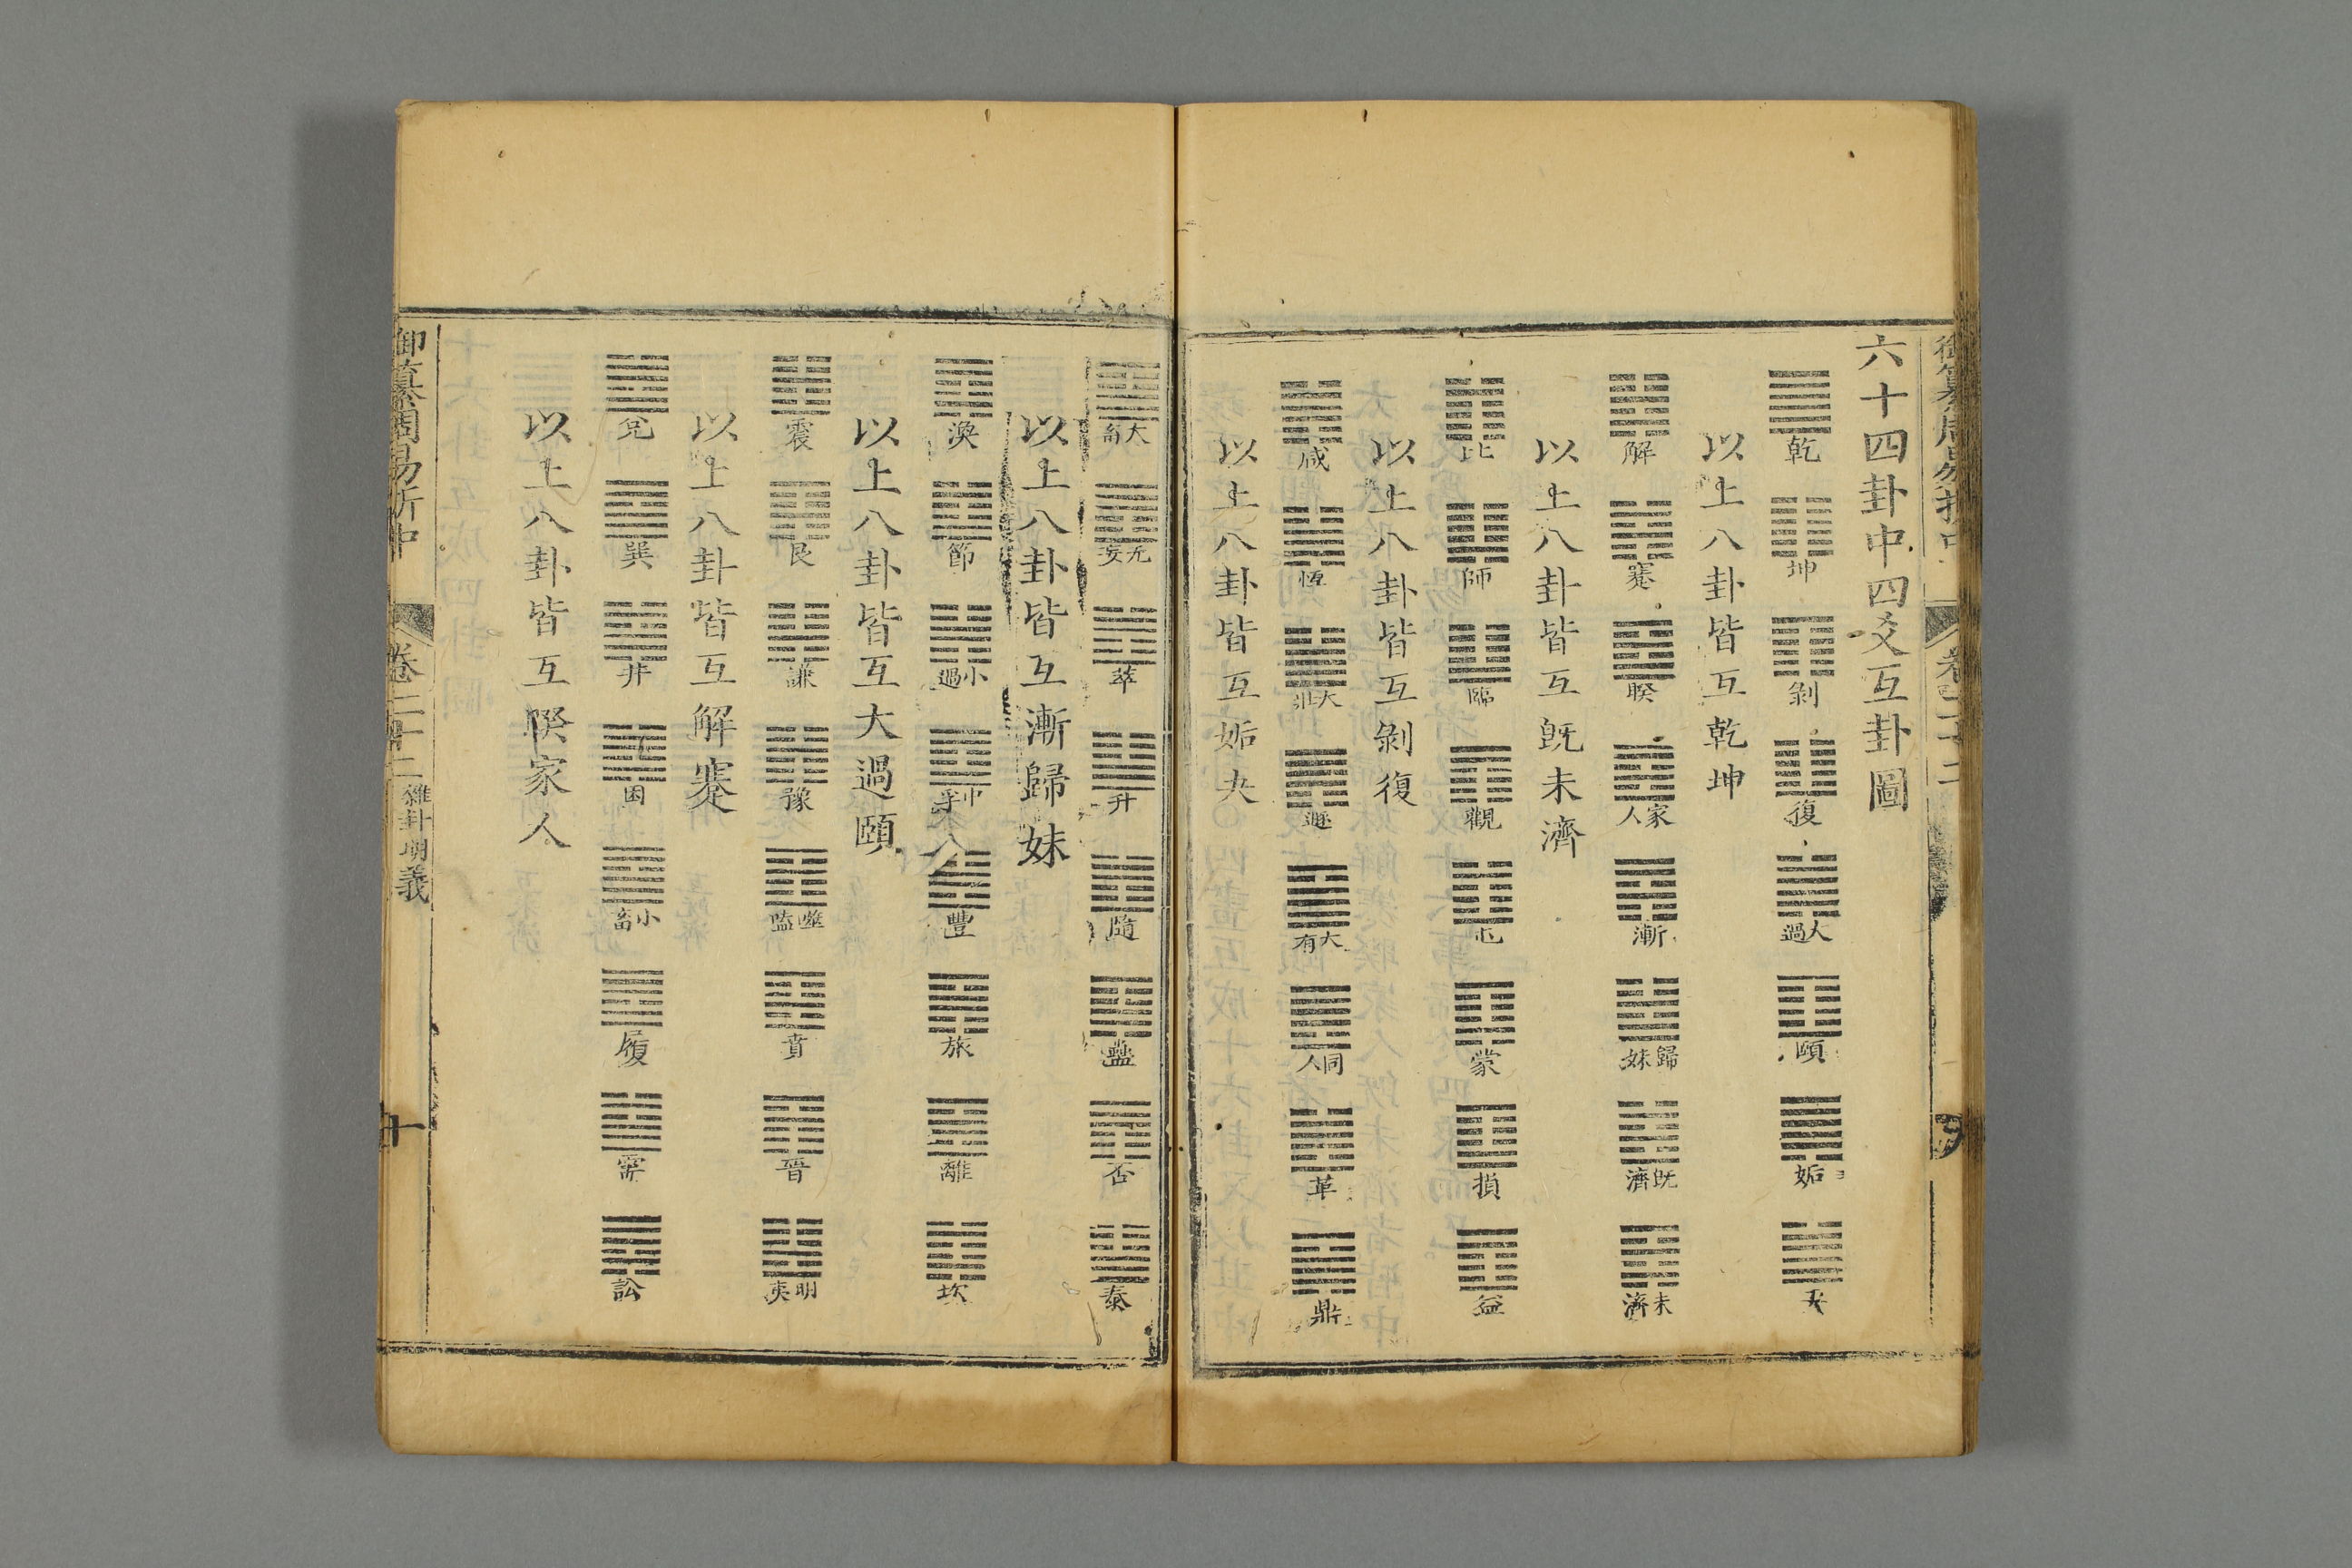 御纂周易折中
卷二十二
六十四卦中四爻互卦圖
乾 坤 剝 復 大過 頤 姤 夬
以上八卦皆互乾坤
解 蹇 睽 家人 漸 歸妹 既濟 未濟
以上八卦皆互既未濟
比 師 臨 觀 屯 蒙 損 益
以上八卦皆互剝復
咸 恆 大壯 遯 大有 同人 革 鼎
以上八卦皆互姤夬
大畜 无妄 萃 升 隨 蠱 否 泰
以上八卦皆互漸歸妹
渙 節 小過 中孚 豐 旅 離 坎
以上八卦皆互大過頤
震 艮 謙 豫 噬嗑 賁 晉 明夷
以上八卦皆互解蹇
兌 巽 井 困 小畜 履 需 訟
以上八卦皆互睽家人
御纂周易折中
卷二十二 雜卦明義
十